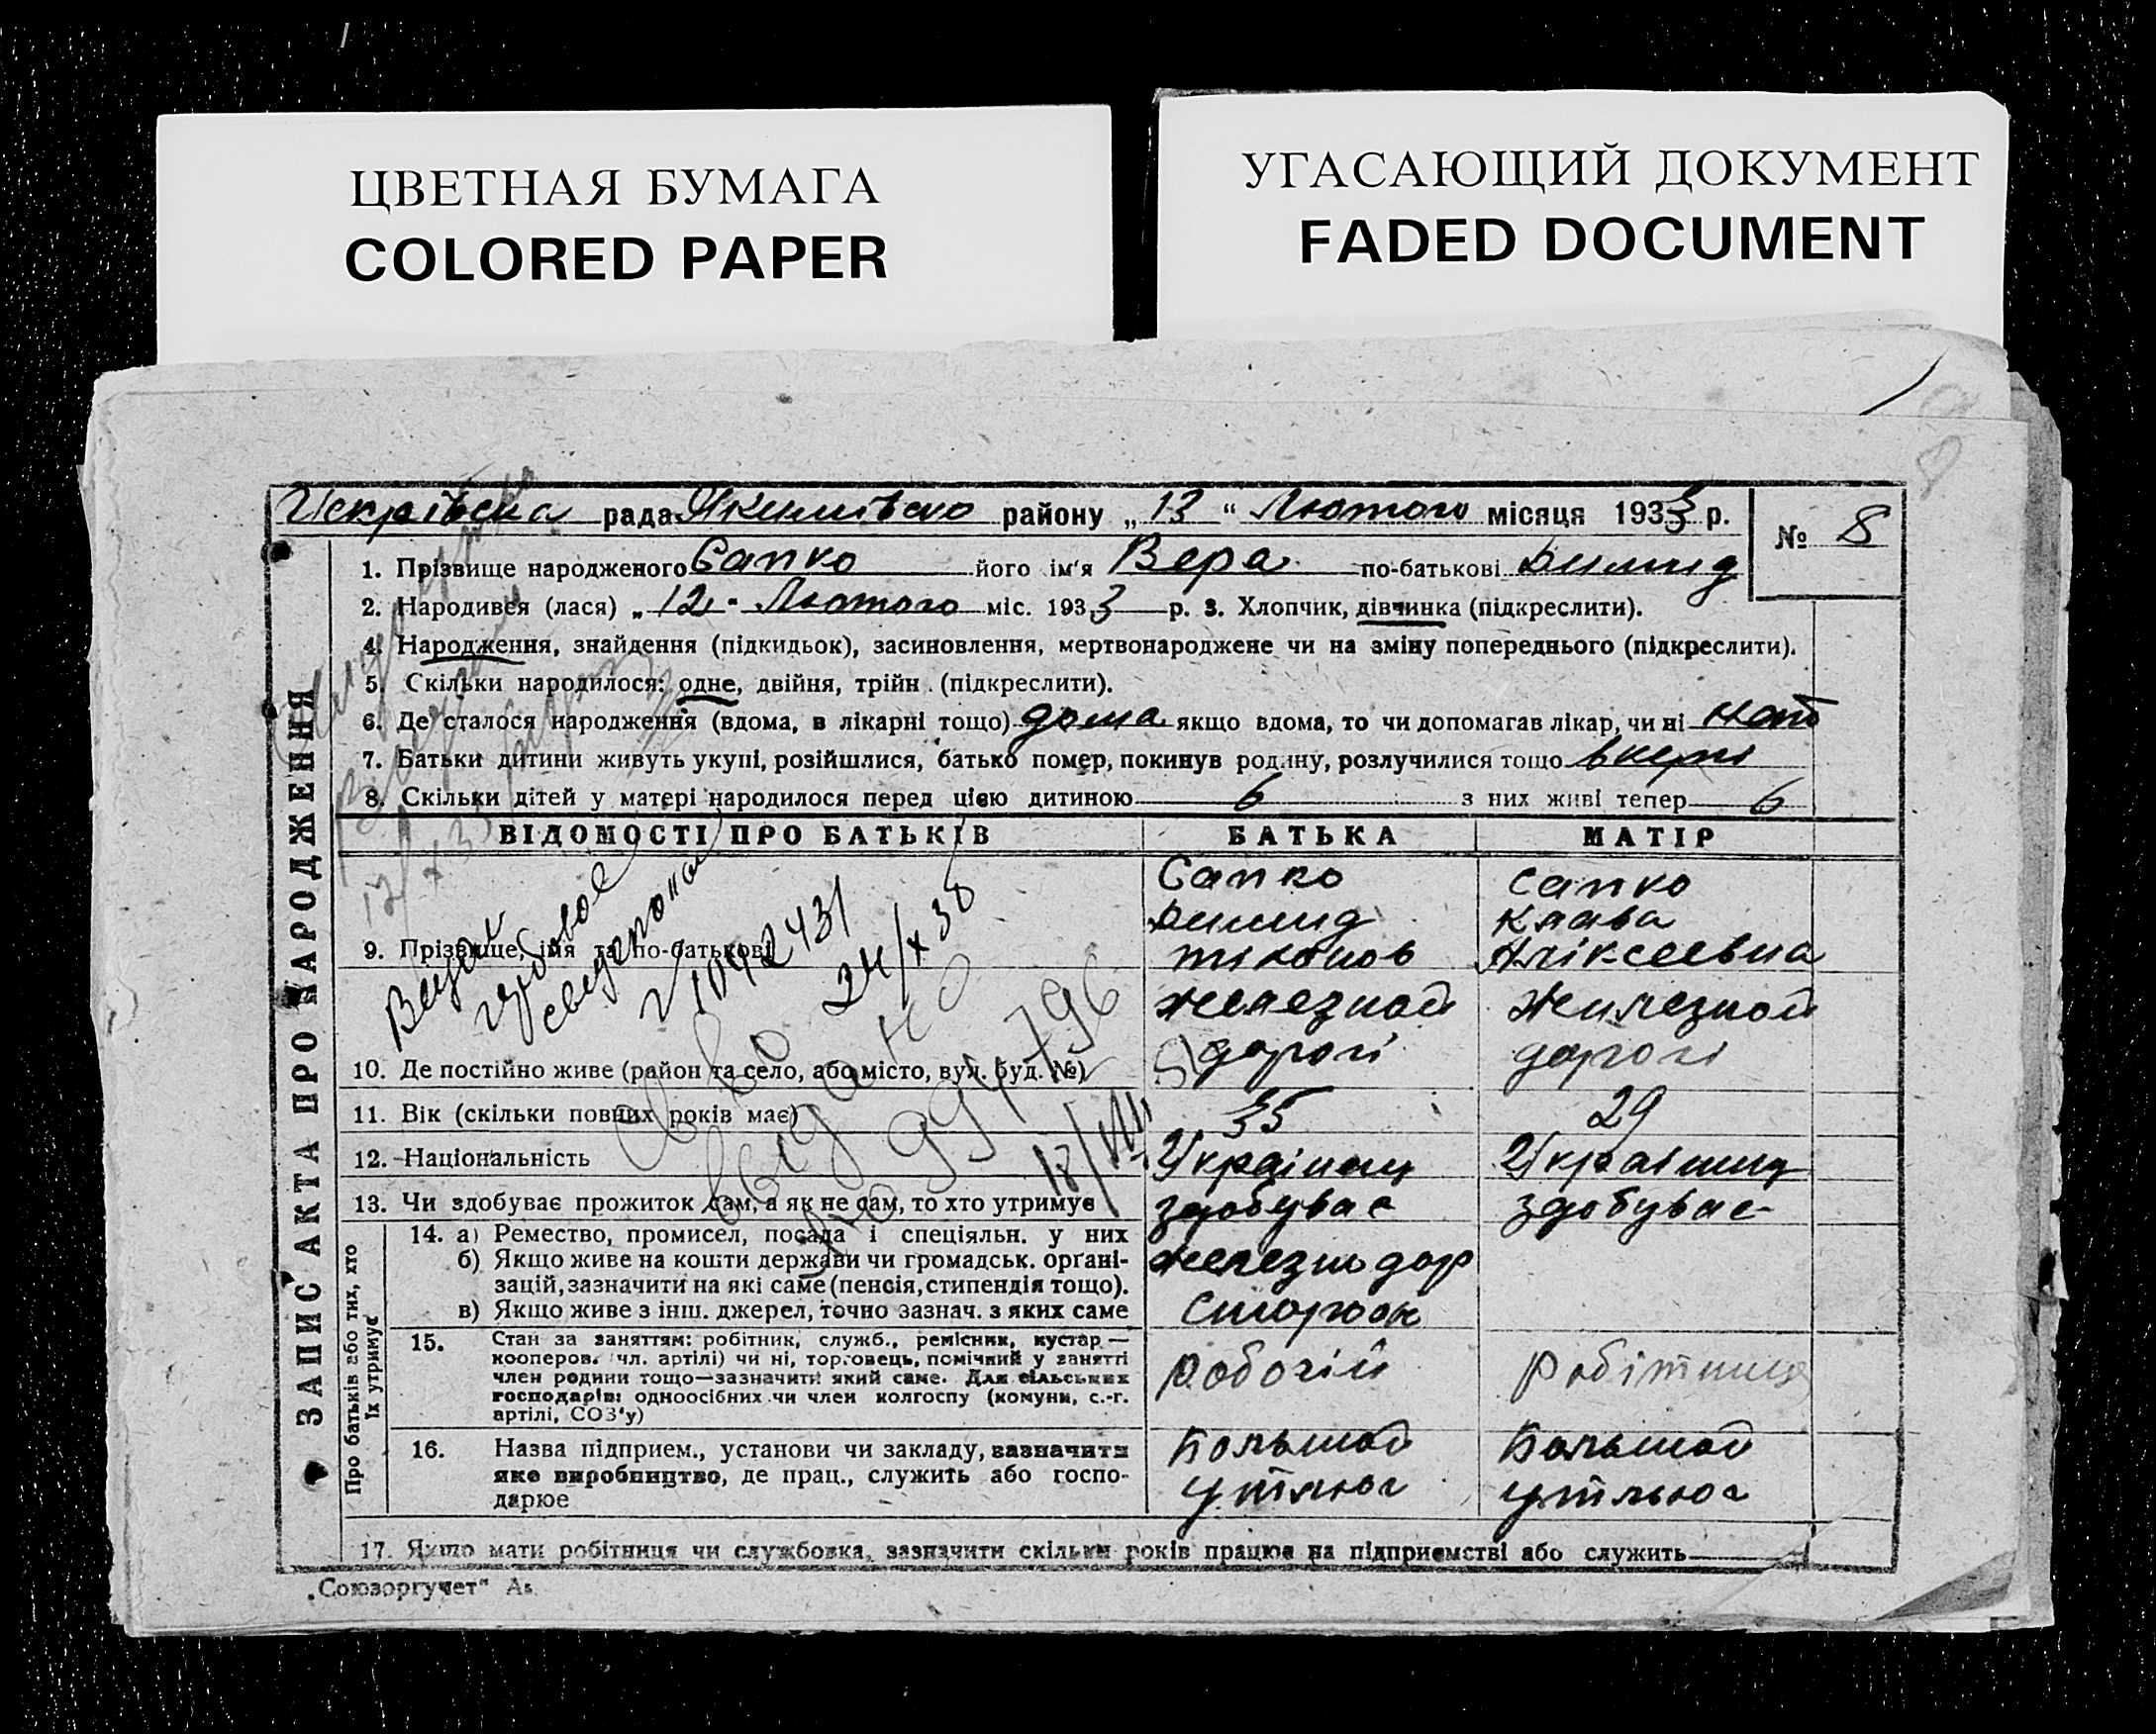 ЦВЕТНАЯ БУМАГА
COLORED PAPER
УГАСАЮЩИЙ ДОКУМЕНТ
FADED DOCUMENT
рада району „ 13 “ Лютого місяця 1933 р.
№ 8
ЗАПИС АКТА ПРО НАРОДЖЕННЯ
1. Прізвище народженого Сапко його ім'я Вера по-батькові
2. Народився (лася) „ 12 " Лютого міс. 1933 р. 3. Хлопчик, дівчинка (підкреслити).
4. Народження, знайдення (підкидьок), засиновлення, мертвонароджене чи на зміну попереднього (підкреслити).
5. Скільки народилося: одне, двійня, трійн . (підкреслити).
6. Де сталося народження (вдома, в лікарні тощо) дома якщо вдома, то чи допомагав лікар, чи ні
7. Батьки дитини живуть укупі, розійшлися, батько помер, покинув родину, розлучилися тощо вкупі
8. Скільки дітей у матері народилося перед цією дитиною 6 з них живі тепер 6
ВІДОМОСТІ ПРО БАТЬКІВ БАТЬКА МАТІР
Сапко Сапко
Клава
9. Прізвище, імя та по-батькові Аліксеевна
24/X 38
железной
дорогі дорогі
10. Де постійно живе (район та село, або місто, вул. буд. №)
11. Вік (скільки повних років має) 35 29
12. Національність Украінец
13. Чи здобуває прожиток сам, а як не сам, то хто утримує здобувае здобувае
Про батьків або тих, хто їх утримує
14. а) Ремество, промисел, посада і спеціяльн. у них
б) Якщо живе на кошти держави чи громадськ. органі-
зацій, зазначити на які саме (пенсія, стипендія тощо).
в) Якщо живе з інш. джерел, точно зазнач. з яких саме
15. Стан за заняттям: робітник, служб., ремісник, кустар —
кооперов. чл. артілі) чи ні, торговець, помічний у занятті
член родини тощо—зазначити який саме. Для сільських
господарів: одноосібних чи член колгоспу (комуни, с.-г.
артілі, СОЗ'у)
робочій робітниця
16. Назва підприєм., установи чи закладу, зазначити
яке виробництво, де прац., служить або госпо-
дарює
Большой Большой
Утлюг Утльюг
17. Якщо мати робітниця чи службовка, зазначити скільки років працює на підприємстві або служить
„Союзоргучет"